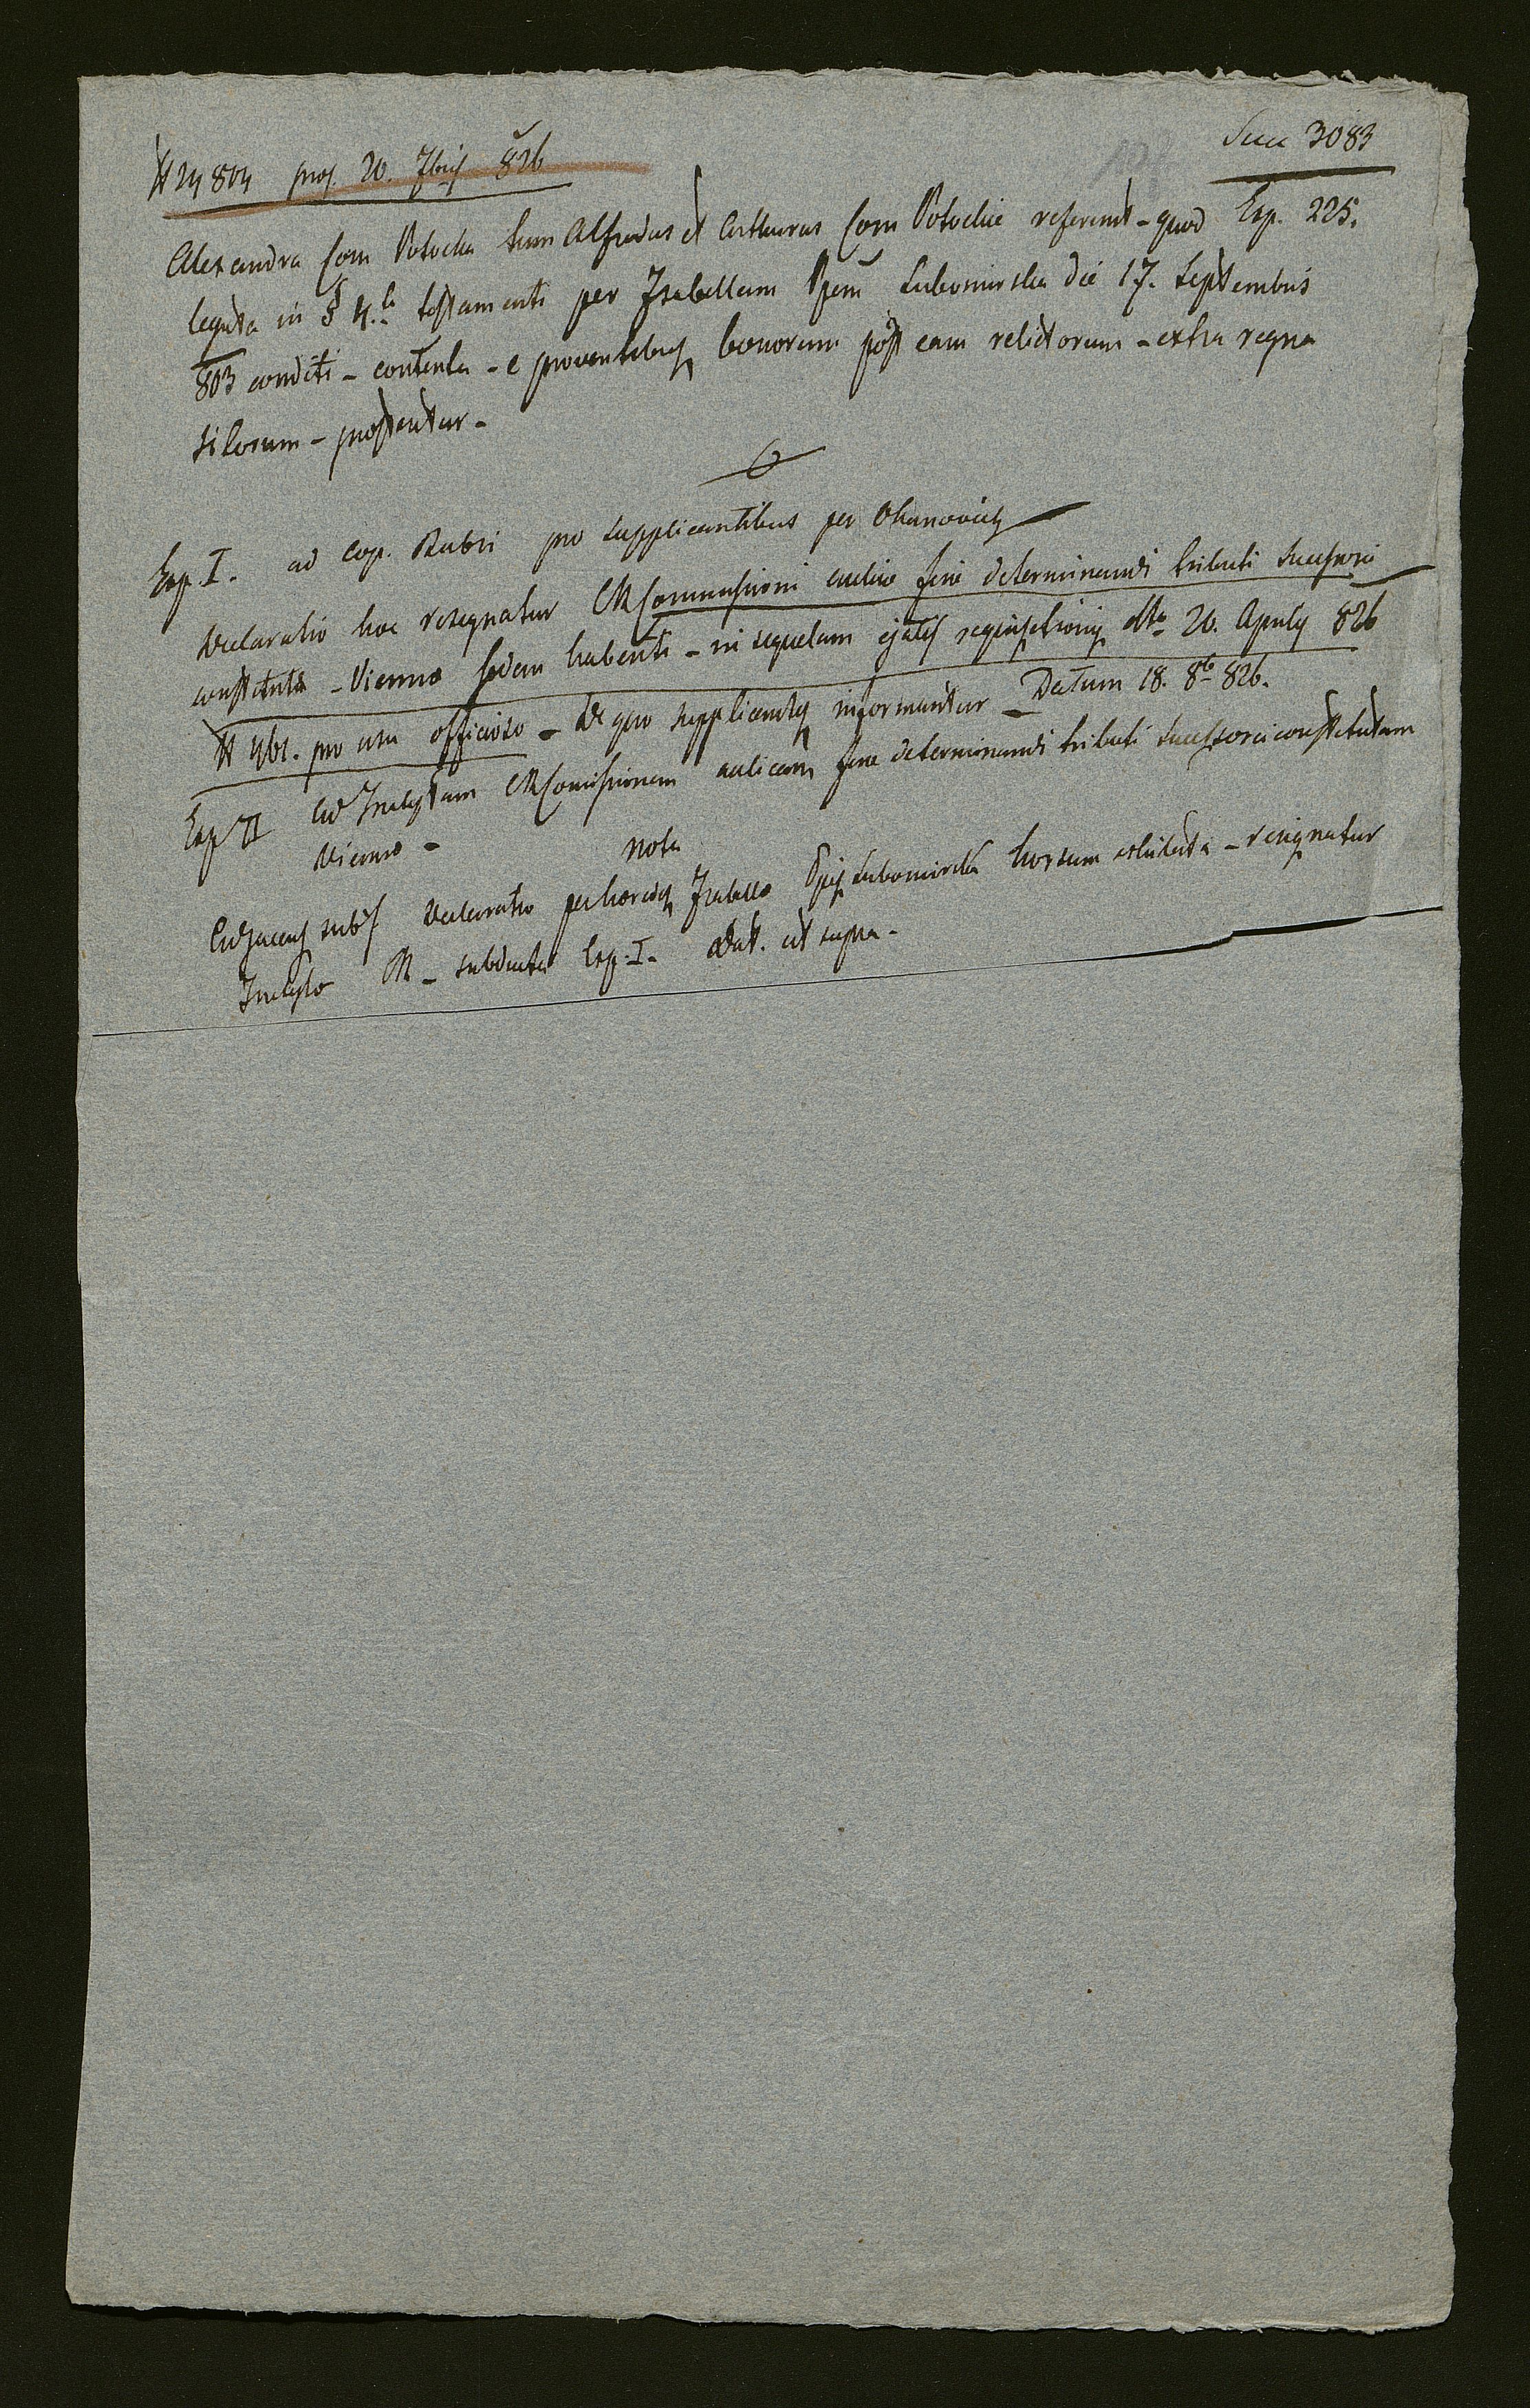 Succ 3083
24804 pres. 20. 7bris 826
Alexandra Com Potocka tum Alfredus et Arthurus Com Potockie referunt - quod Exp. 225.
legata in § 4.to testamenti per Isabellam Ppem Lubomirska die 17. Septembris
803 conditi - contenta - e proventibus bonorum post eam relictorum - extra regna
sitorum - prostentur -
Exp. I. ad cop. Rubri pro supplicantibus per Okanowicz
Declaratio hoc resignatur CR Commissioni aulicae fine determinandi tributi successorii
constituta - Viennae sedem habenti - in sequelam ejates requisitionis dto 20. Aprilis 826
961. pro usu officioso - de quo supplicantes informantur - Datum 18. 8br 826.
Exp II Ad Inclytam CR Comissionem aulicam fine determinandi tributi successorii constitutam
Viennae - nota
Adjacens sub / Declaratio per haeredes Isabellae Ppis Lubomirska horsum exhibita - resignatur
Inclytae CR - subducta Exp. I. Dat. ut supra -